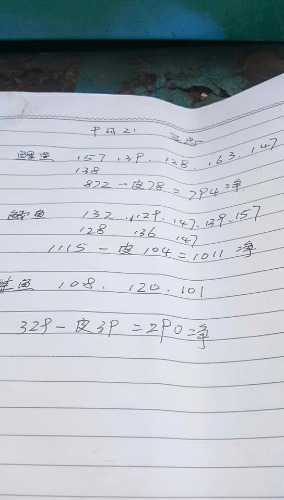 鱼 157.139.128.163.147
138
872－皮78=794净
鱼 132.129.147.139.157
128 136 147
1115－皮104=1011净
鱼 108.120.101
329－皮39=290净